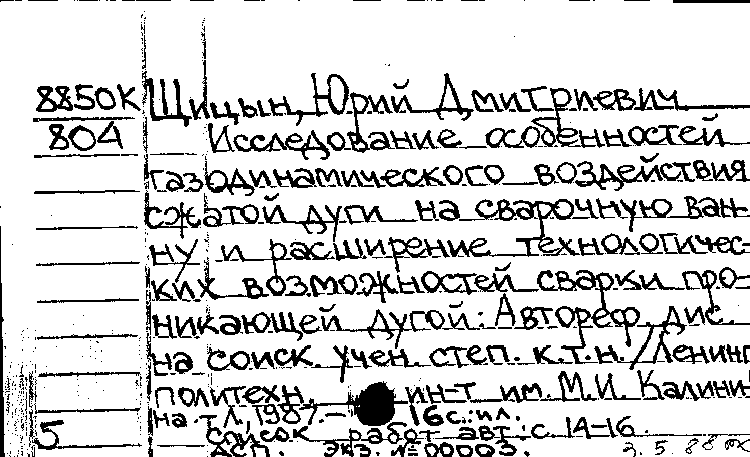 8850К Щицын, Юрий Дмитриевич
804 Исследование особенностей
газодинамического воздействия
сжатой дуги на сварочную ван-
ну и расширение технологичес-
ких возможностей сварки про-
никающей дугой: Автореф. дис.
на соиск. учен. степ. к.т.н. / Ленинг
политехн. ин-т им. М.И. Калини-
на. - Л., 1987. - 16 с.: ил.
5 Список работ авт.: с. 14-16.
АСП. экз. № 00003.